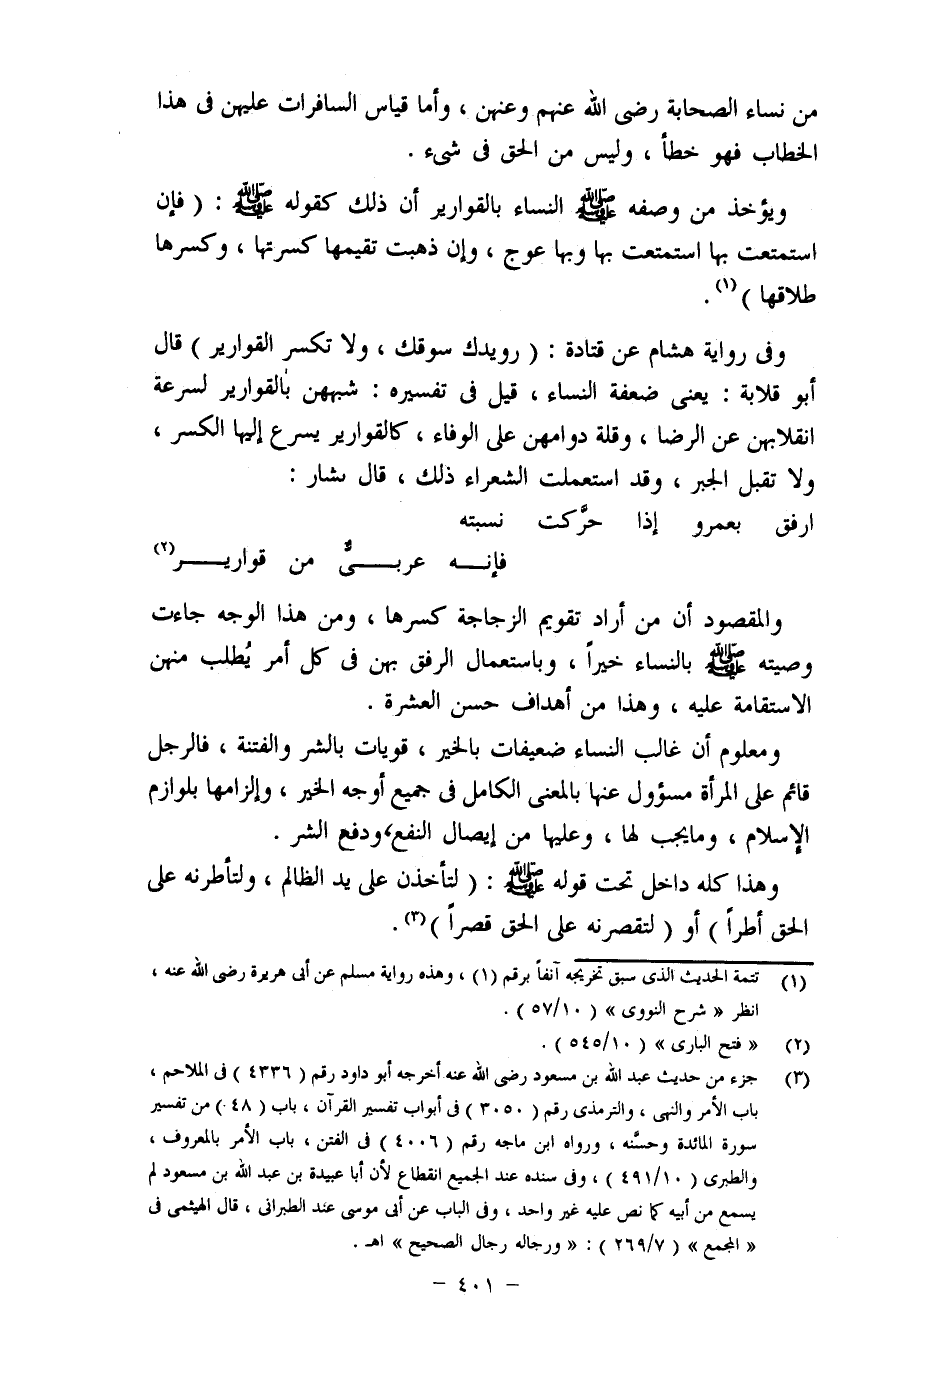 من نساء الصحابة رضى الله عنهم وعنهن ، وأما قياس السافرات عليهن فى هذا
الخطاب فهو خطأ ، وليس من الحق فى شىء .
ويؤخذ من وصفه ﷺ النساء بالقوارير أن ذلك كقوله ﷺ : ( فإن
استمتعت بها استمتعت بها وبها عوج ، وإن ذهبت تقيمها كسرتها ، وكسرها
طلاقها )(١) .
وفى رواية هشام عن قتادة : ( رويدك سوقك ، ولا تكسر القوارير ) قال
أبو قلابة : يعنى ضعفة النساء ، قيل فى تفسيره : شبههن بالقوارير لسرعة
انقلابهن عن الرضا ، وقلة دوامهن على الوفاء ، كالقوارير يسرع إليها الكسر ،
ولا تقبل الجبر ، وقد استعملت الشعراء ذلك ، قال بشار :
ارفق بعمرو إذا حرَّكت نسبته
فإنــه عربــىٌّ من قواريــر(٢)
والمقصود أن من أراد تقويم الزجاجة كسرها ، ومن هذا الوجه جاءت
وصيته ﷺ بالنساء خيراً ، وباستعمال الرفق بهن فى كل أمر يُطلب منهن
الاستقامة عليه ، وهذا من أهداف حسن العشرة .
ومعلوم أن غالب النساء ضعيفات بالخير ، قويات بالشر والفتنة ، فالرجل
قائم على المرأة مسؤول عنها بالمعنى الكامل فى جميع أوجه الخير ، وإلزامها بلوازم
الإسلام ، ومايجب لها ، وعليها من إيصال النفع ودفع الشر .
وهذا كله داخل تحت قوله ﷺ : ( لتأخذن على يد الظالم ، ولتأطرنه على
الحق أطراً ) أو ( لتقصرنه على الحق قصراً )(٣) .
(١) تتمة الحديث الذى سبق تخريجه آنفاً برقم (١) ، وهذه رواية مسلم عن أبى هريرة رضى الله عنه ،
انظر « شرح النووى » ( ٥٧/١٠ ) .
(٢) « فتح البارى » ( ٥٤٥/١٠ ) .
(٣) جزء من حديث عبد الله بن مسعود رضى الله عنه أخرجه أبو داود رقم ( ٤٣٣٦ ) فى الملاحم ،
باب الأمر والنهى ، والترمذى رقم ( ٣٠٥٠ ) فى أبواب تفسير القرآن ، باب ( ٤٨ ) من تفسير
سورة المائدة وحسَّنه ، ورواه ابن ماجه رقم ( ٤٠٠٦ ) فى الفتن ، باب الأمر بالمعروف ،
والطبرى ( ٤٩١/١٠ ) ، وفى سنده عند الجميع انقطاع لأن أبا عبيدة بن عبد الله بن مسعود لم
يسمع من أبيه كما نص عليه غير واحد ، وفى الباب عن أبى موسى عند الطبرانى ، قال الهيثمى فى
« المجمع » ( ٢٦٩/٧ ) : « ورجاله رجال الصحيح » اهـ .
– ٤٠١ –